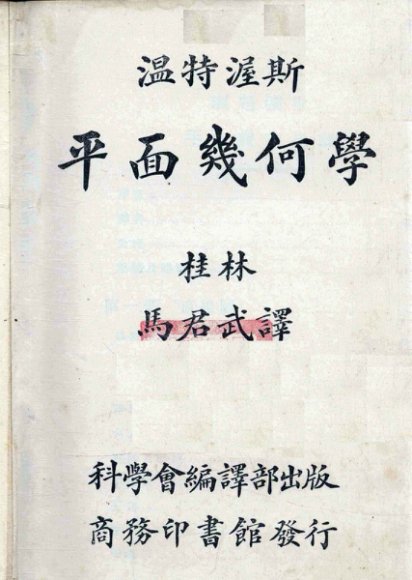 温特渥斯
平面幾何學
桂林
馬君武譯
科學會編譯部出版
商務印書館發行